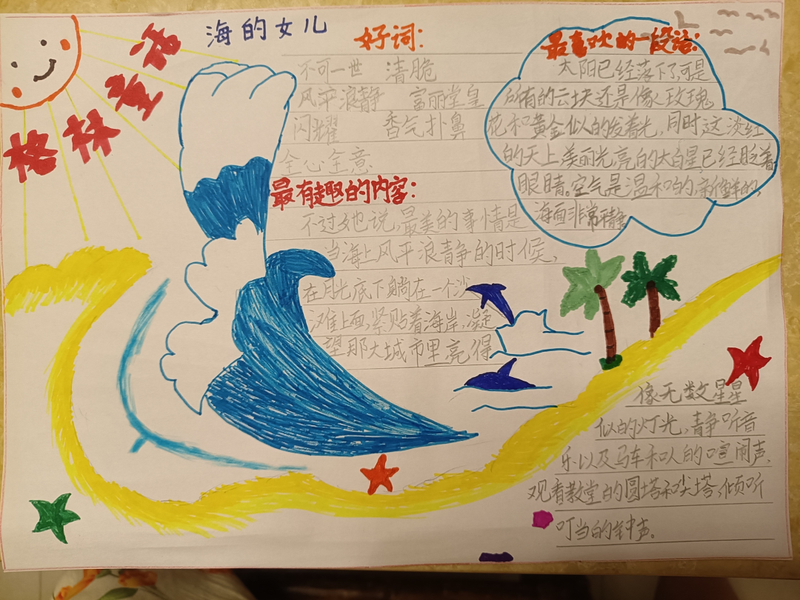 格林童话
海的女儿
好词:
不可一世 清脆
风平浪静 富丽堂皇
闪耀 香气扑鼻
全心全意
最有趣的内容:
不过她说,最美的事情是
当海上风平浪静的时候,
在月光底下躺在一个沙
滩上面,紧贴着海岸,凝
望那大城市里亮得
像无数星星
似的灯光,静听音
乐以及马车和人的喧闹声.
观看教堂的圆塔和尖塔,倾听
叮当的钟声.
最喜欢的一段话:
太阳已经落下了,可是
所有的云块还是像玫瑰
花和黄金似的发着光,同时这淡红
的天上,美丽光亮的太白星已经眨着
眼睛.空气是温和的,新鲜的.
海面非常平静